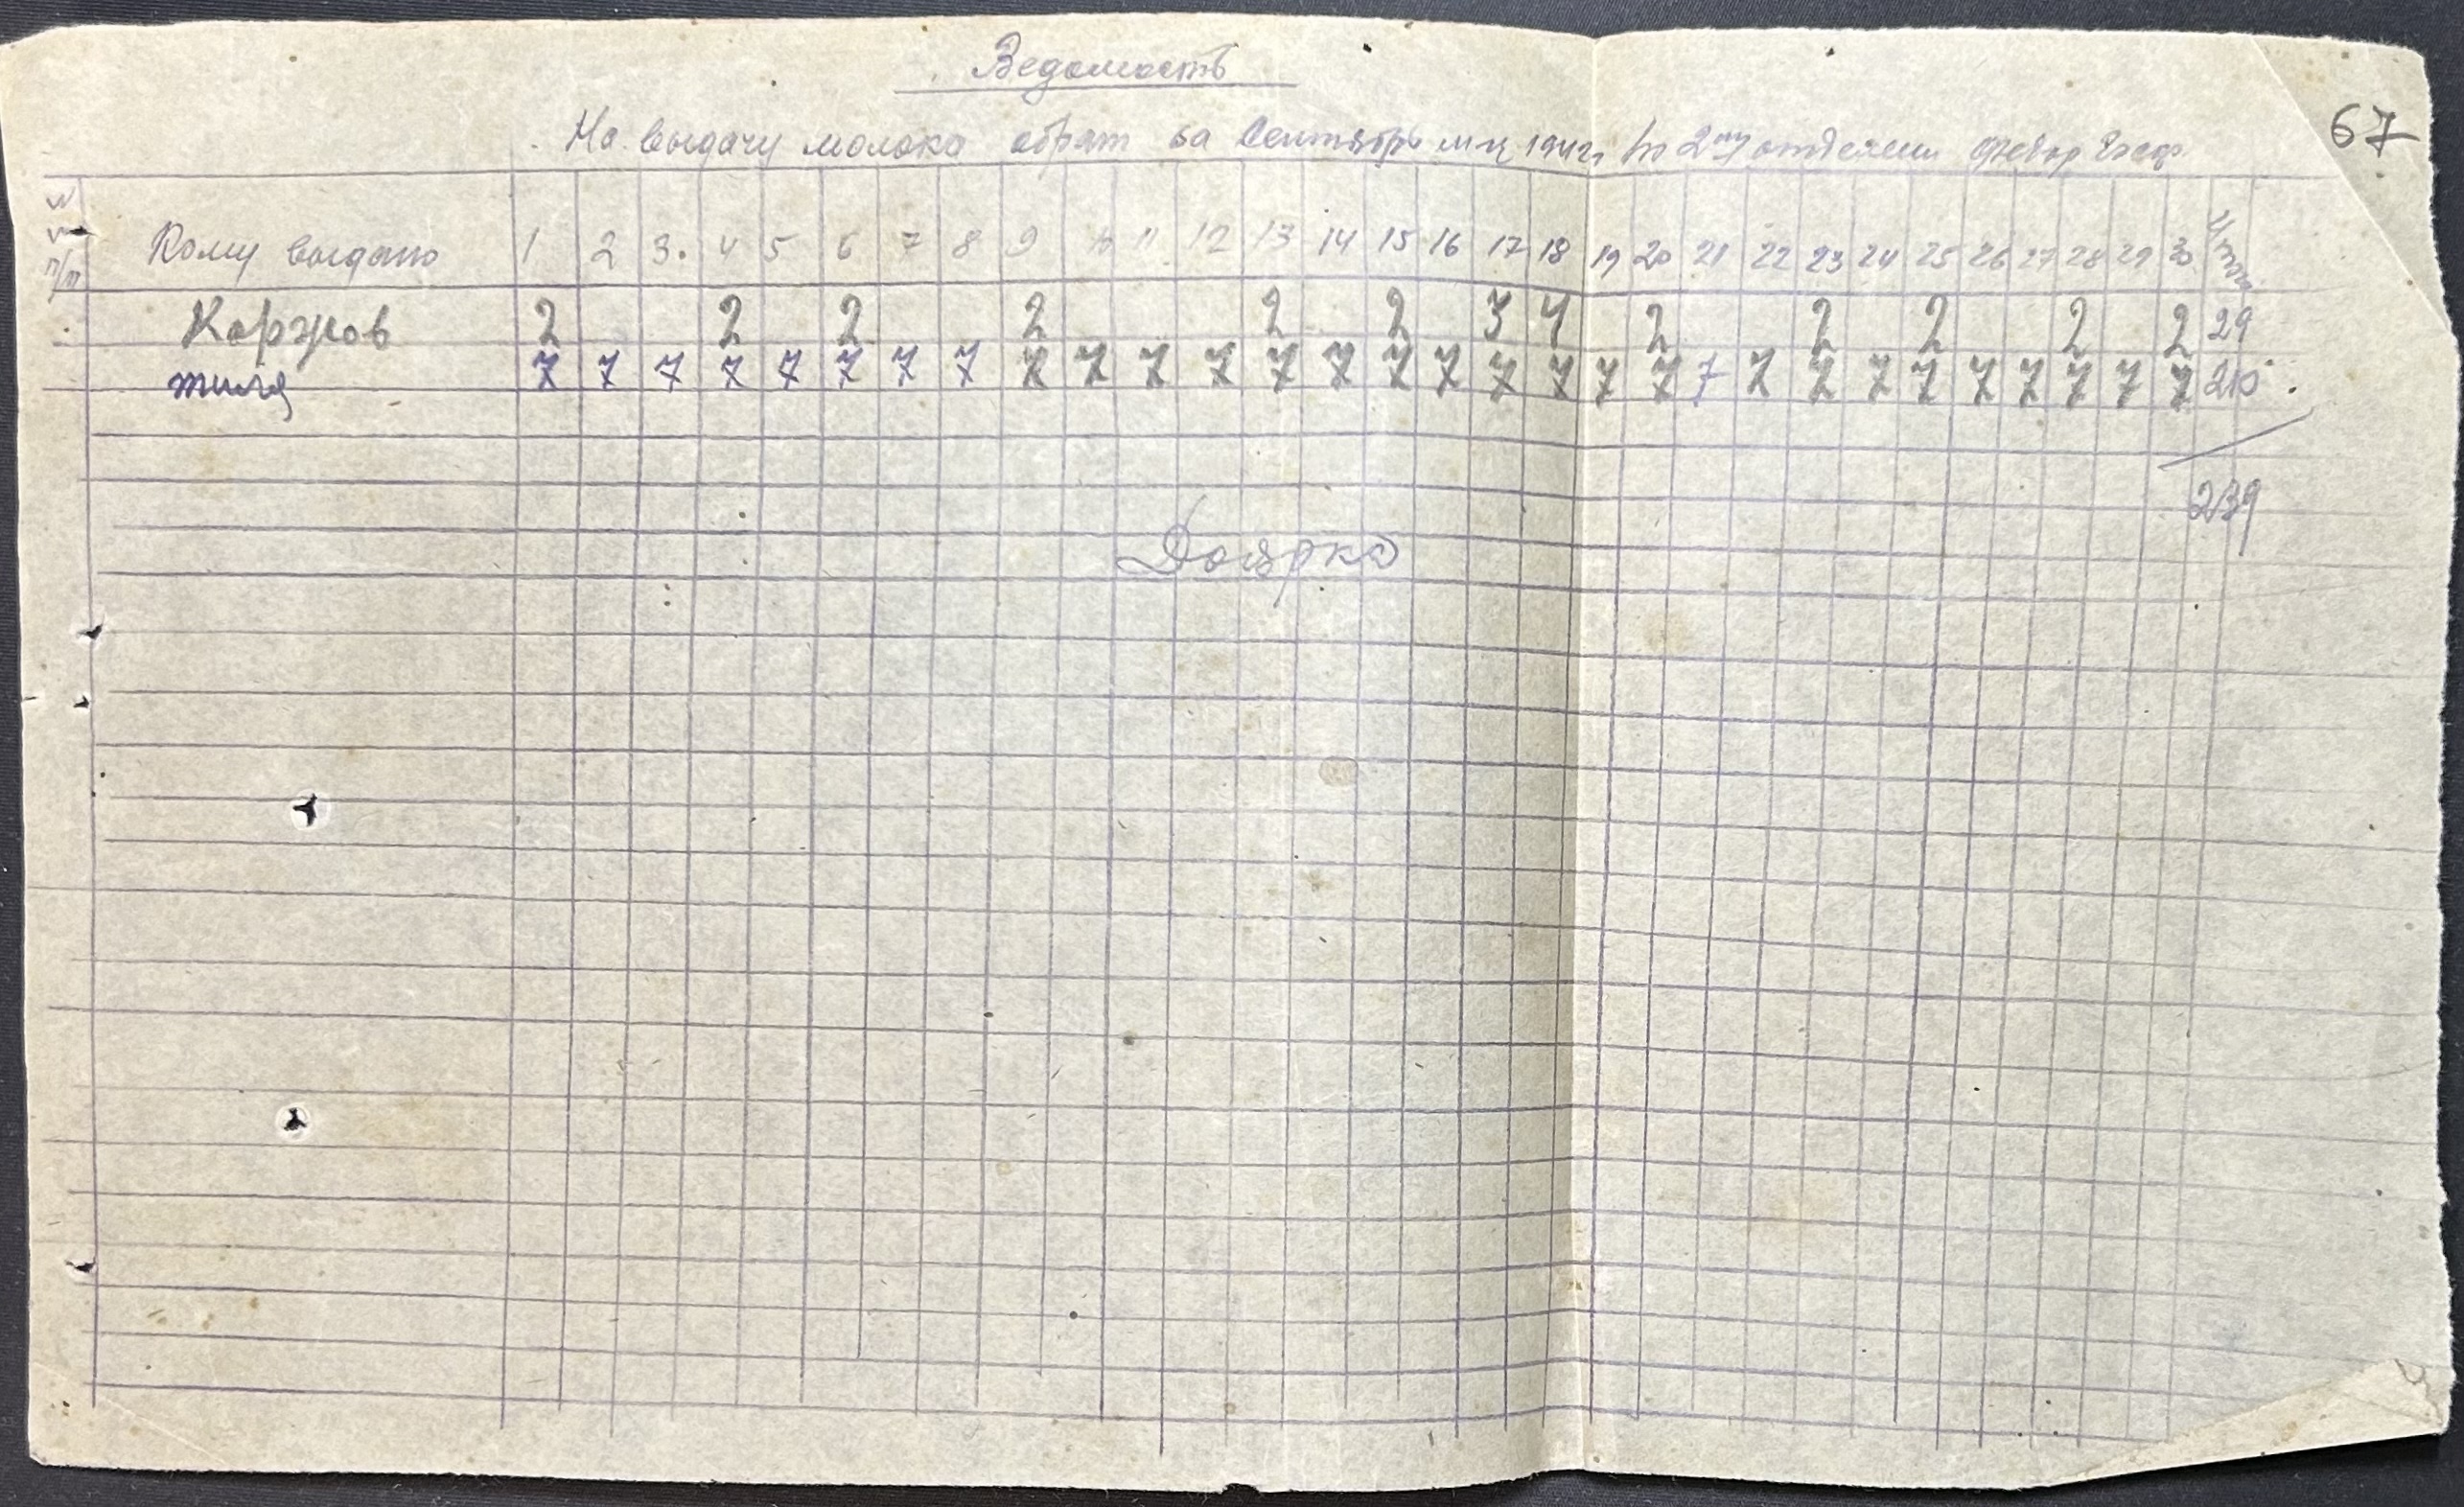 67
Ведомость
На выдачу молока обрат за Сентябрь м-ц 1942г по 2му отделению
№№ п/п Кому выдано 1 2 3. 4 5 6 7 8 9 10 11 12 13 14 15 16 17 18 19 20 21 22 23 24 25 26 27 28 29 30 Итог
Коржов 2 2 2 2 2 2 3 4 2 2 2 2 2 29
7 7 7 7 7 7 7 7 7 7 7 7 7 7 7 7 7 7 7 7 7 7 7 7 7 7 7 7 7 7 210
239
Доярка